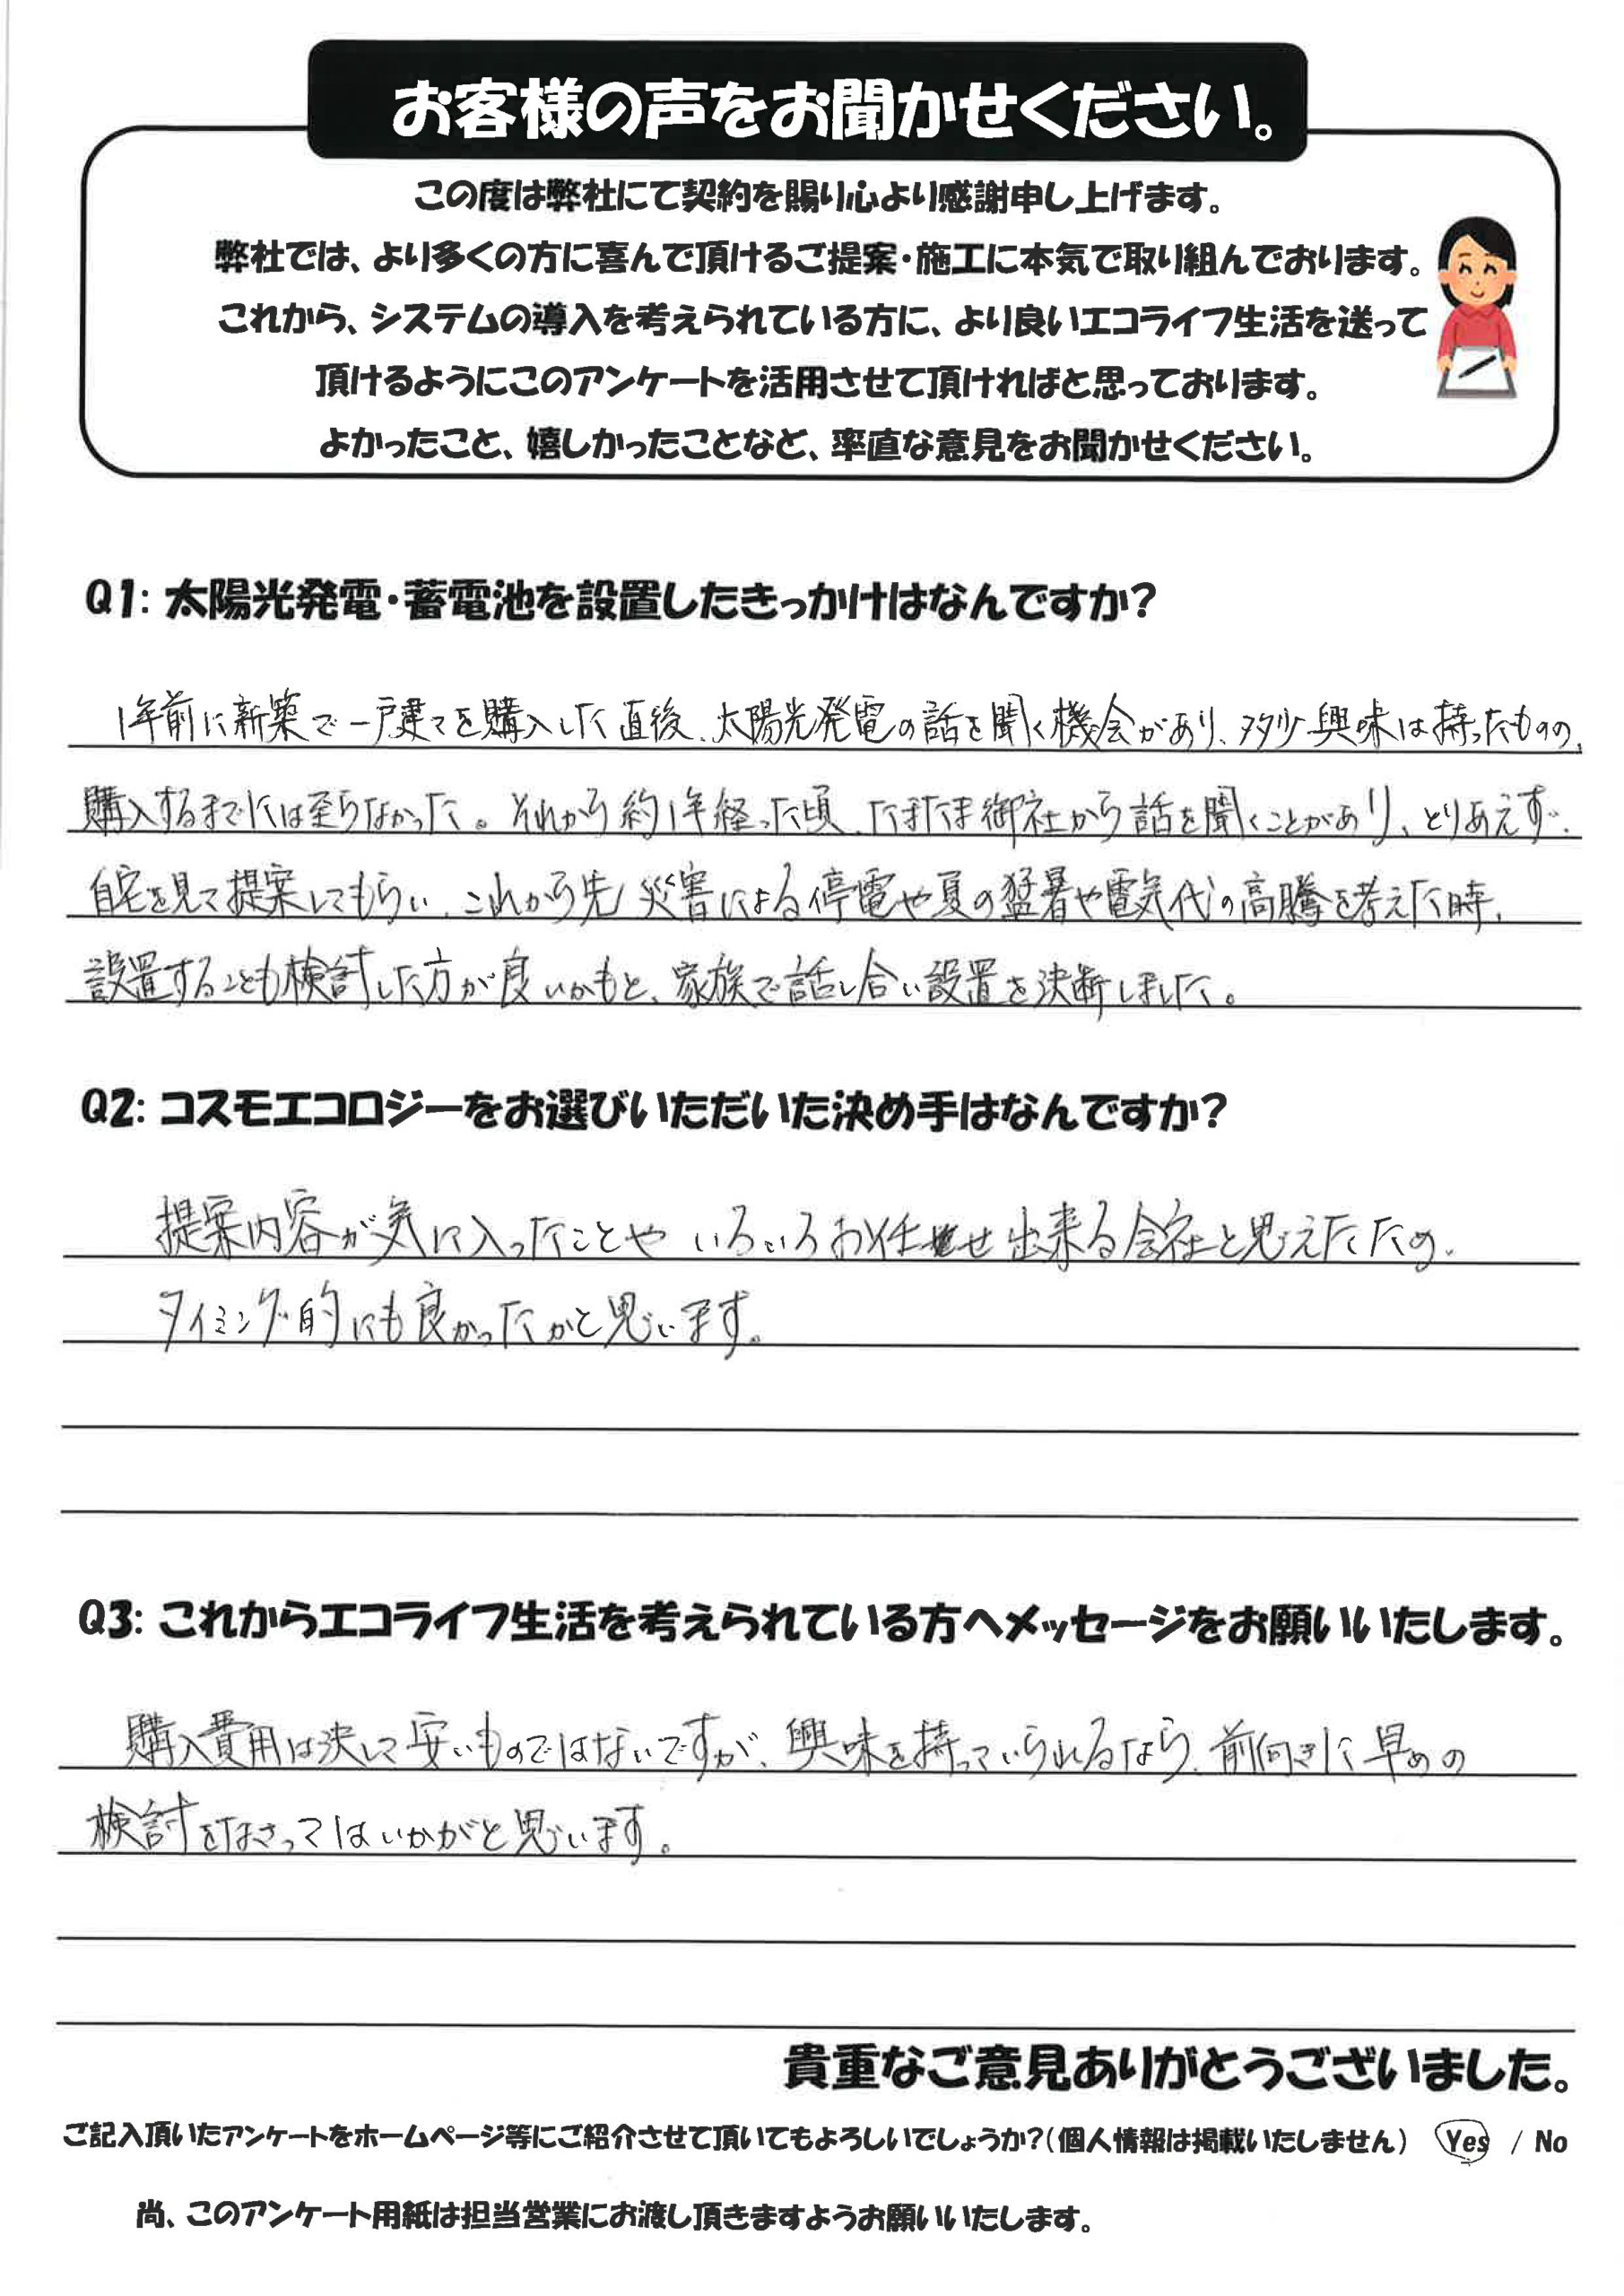 お客様の声をお聞かせください。
この度は弊社にて契約を賜り心より感謝申し上げます。
弊社では、より多くの方に喜んで頂けるご提案・施工に本気で取り組んでおります。
これから、システムの導入を考えられている方に、より良いエコライフ生活を送って
頂けるようにこのアンケートを活用させて頂ければと思っております。
よかったこと、嬉しかったことなど、率直な意見をお聞かせください。
Q1: 太陽光発電・蓄電池を設置したきっかけはなんですか?
1年前に新築で一戸建てを購入した直後、太陽光発電の話を聞く機会があり、多少興味は持ったものの、
購入するまでには至らなかった。それから約1年経った頃、たまたま御社から話を聞くことがあり、とりあえず、
自宅を見て提案してもらい、これから先、災害による停電や夏の猛暑や電気代の高騰を考えた時、
設置することも検討した方が良いかもと、家族で話し合い設置を決断しました。
Q2: コスモエコロジーをお選びいただいた決め手はなんですか?
提案内容が気に入ったことや いろいろお任せ出来る会社と思えたため、
タイミング的にも良かったかと思います。
Q3: これからエコライフ生活を考えられている方へメッセージをお願いいたします。
購入費用は決して安いものではないですが、興味を持っていられるなら、前向きに早めの
検討をなさってはいかがと思います。
貴重なご意見ありがとうございました。
ご記入頂いたアンケートをホームページ等にご紹介させて頂いてもよろしいでしょうか?(個人情報は掲載いたしません) Yes / No
尚、このアンケート用紙は担当営業にお渡し頂きますようお願いいたします。